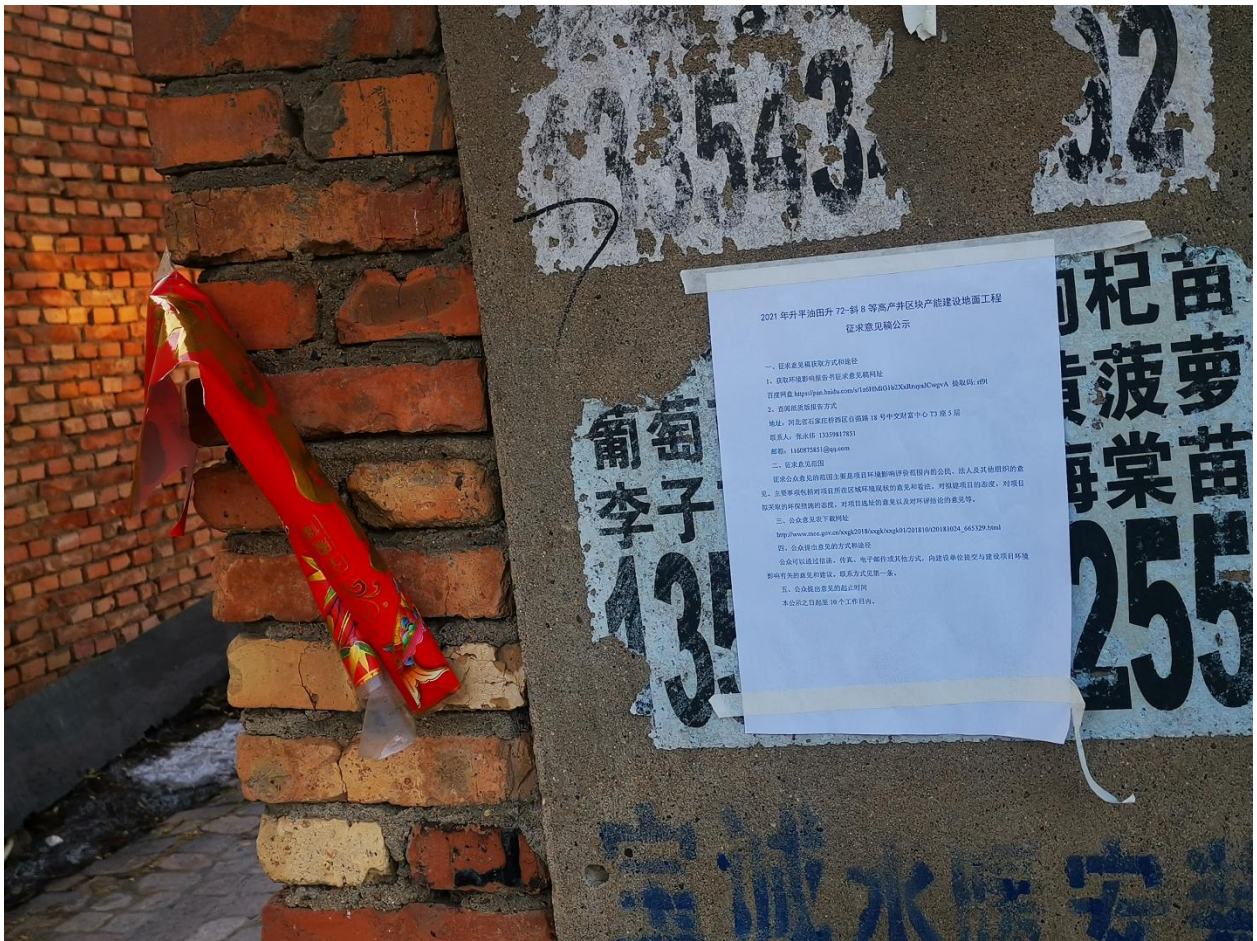 133543
92
2021 年升平油田升 72-斜 8 等高产井区块产能建设地面工程
征求意见稿公示
一、征求意见稿获取方式和途径
1、获取环境影响报告书征求意见稿网址
2、查阅纸质版报告方式
地址：河北省石家庄桥西区自强路 18 号中交财富中心 T3 座 5 层
联系人：张永伟 13359817851
邮箱：1160875851@qq.com
二、征求意见范围
征求公众意见的范围主要是项目环境影响评价范围内的公民、法人及其他组织的意
见。主要事项包括对项目所在区域环境现状的意见和看法、对拟建项目的态度、对项目
拟采取的环保措施的态度、对项目选址的意见以及对环评结论的意见等。
三、公众意见表下载网址
http://www.mee.gov.cn/xxgk2018/xxgk/xxgk01/201810/t20181024_665329.html
四、公众提出意见的方式和途径
公众可以通过信函、传真、电子邮件或其他方式，向建设单位提交与建设项目环境
影响有关的意见和建议。联系方式见第一条。
五、公众提出意见的起止时间
本公示之日起至 10 个工作日内。
葡萄
杞苗
李子
菠萝
海棠苗
135
255
宝诚水暖安装